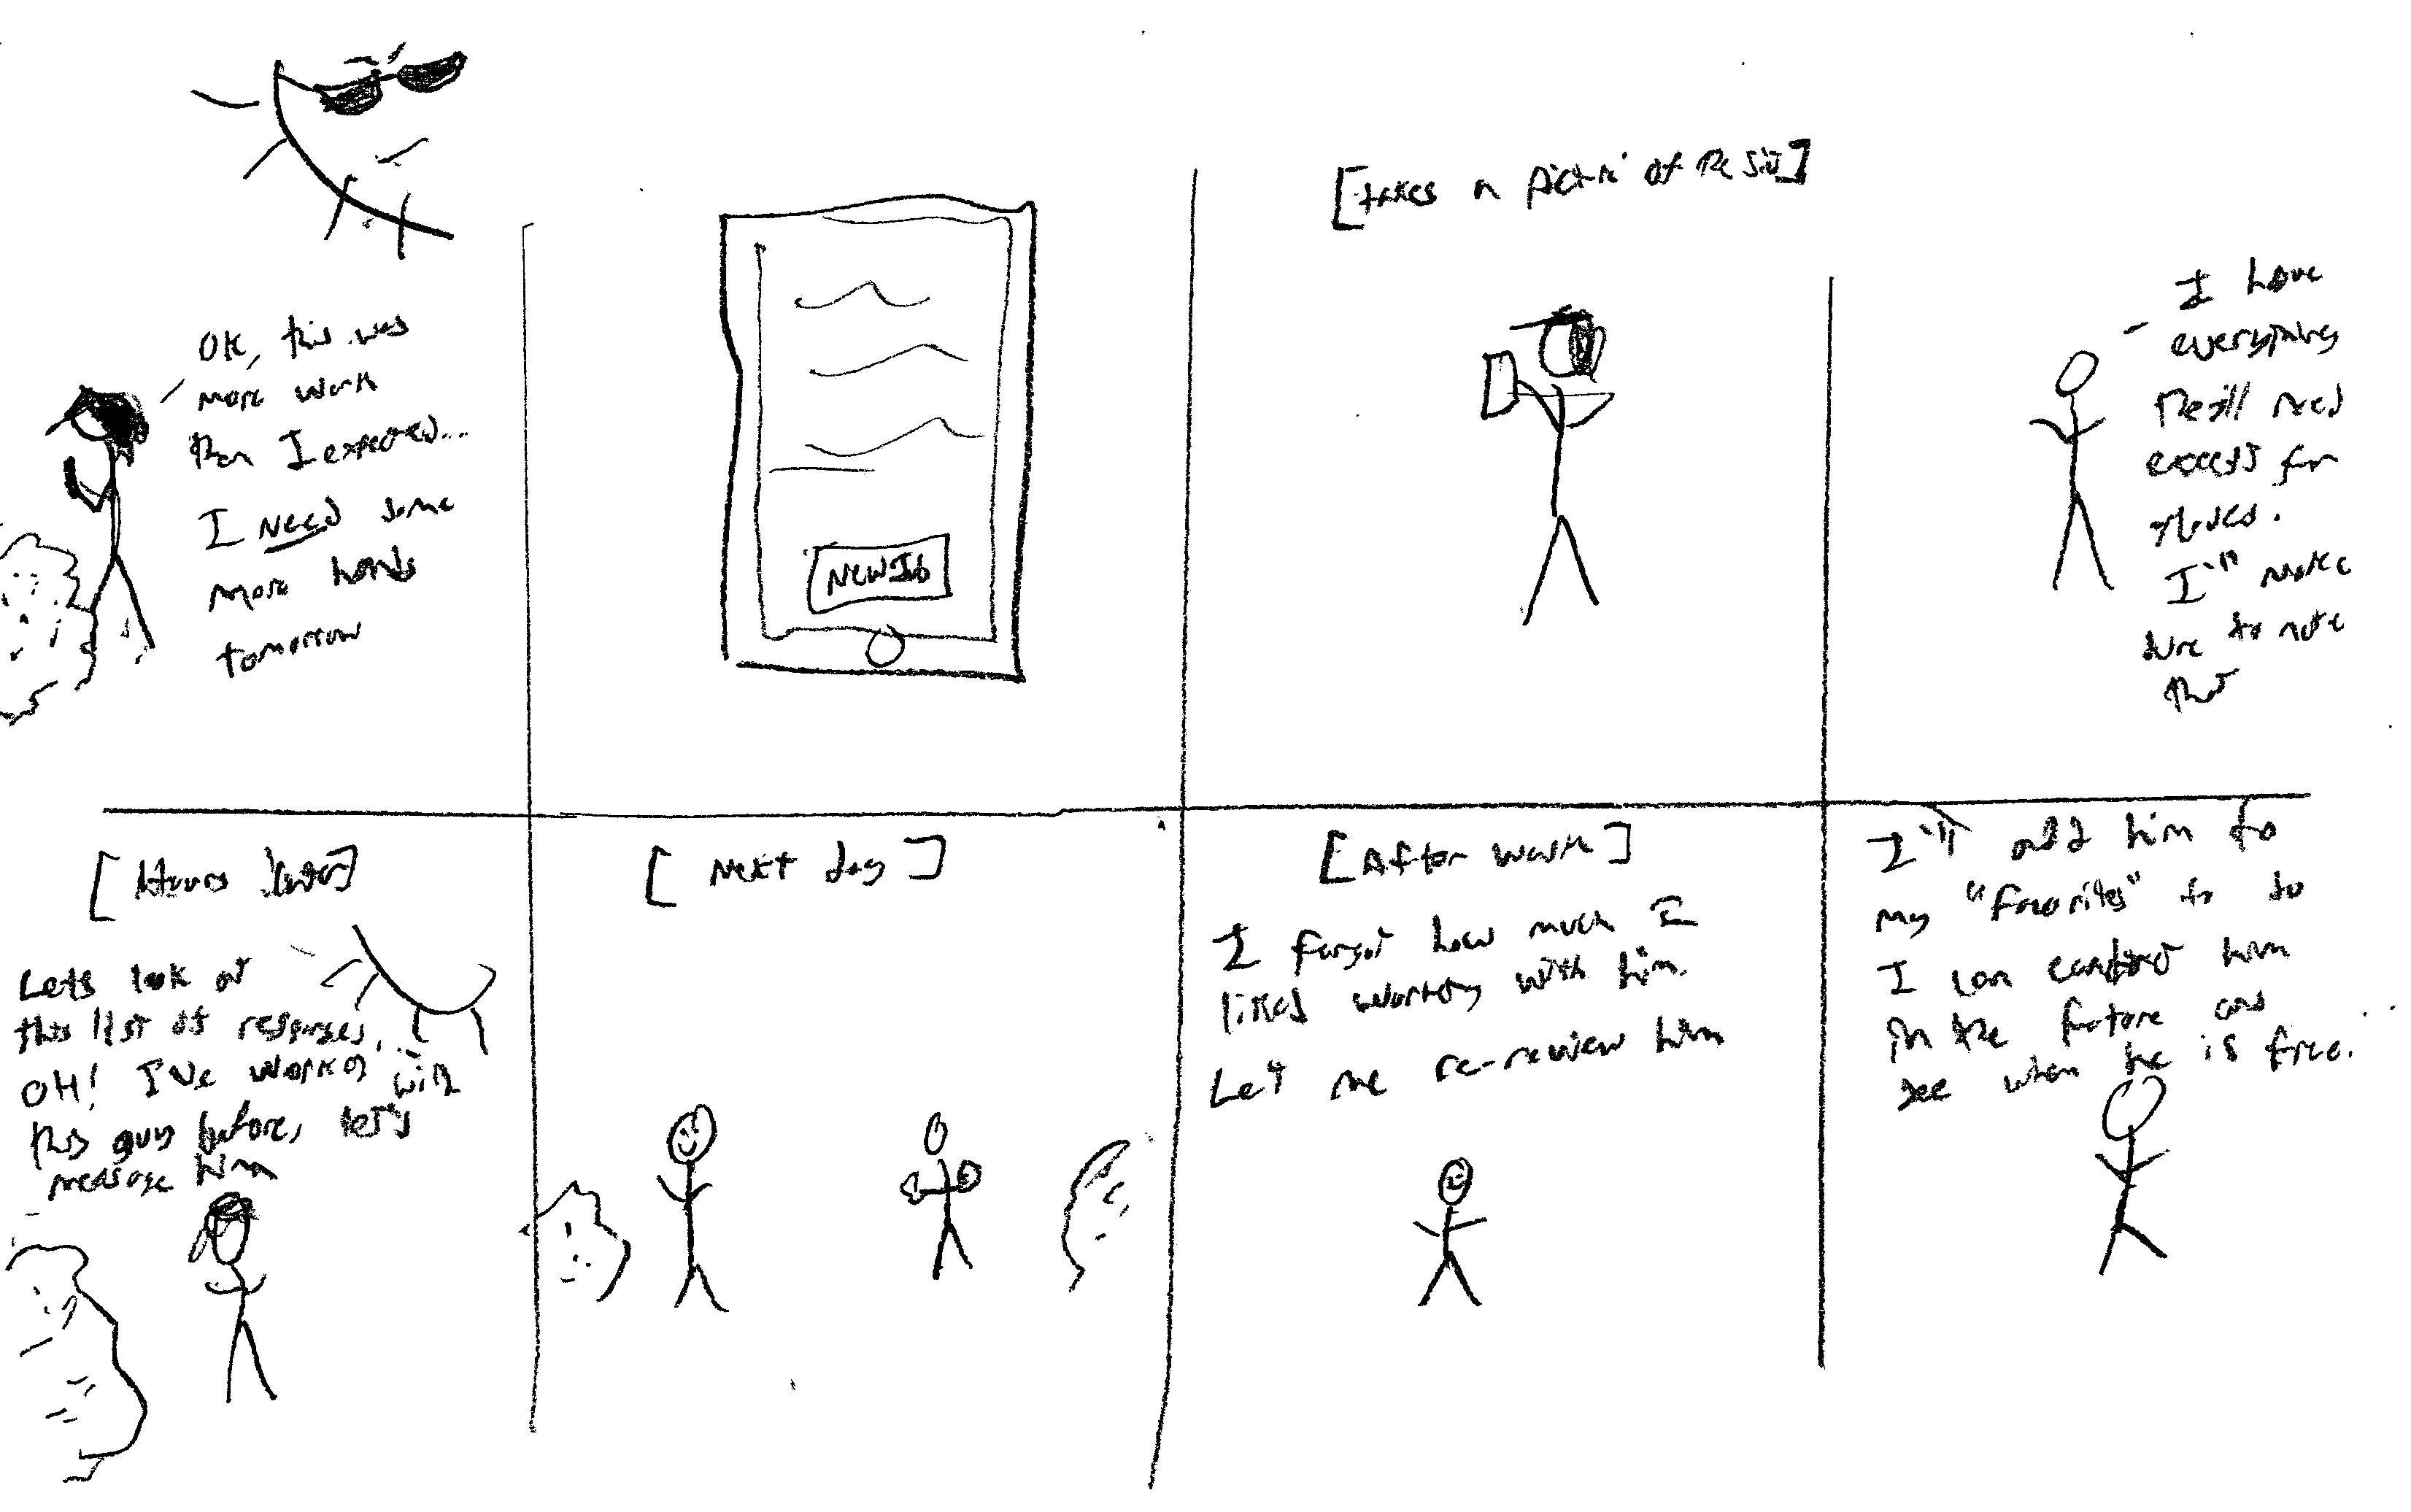 OK, this was
more work
than I expected...
I NEED some
more hands
tomorrow
NEW Job
[takes a picture of the site]
I have
everything
they'll need
except for
gloves.
I'll make
sure to note
that
[Hours later]
Lets look at
this list of responses,
OH! I've worked with
this guy before, let's
message him
[Next day]
[After work]
I forgot how much I
liked working with him.
Let me re-review him
I'll add him to
my "favorites" to so
I can contact him
in the future and
see when he is free.